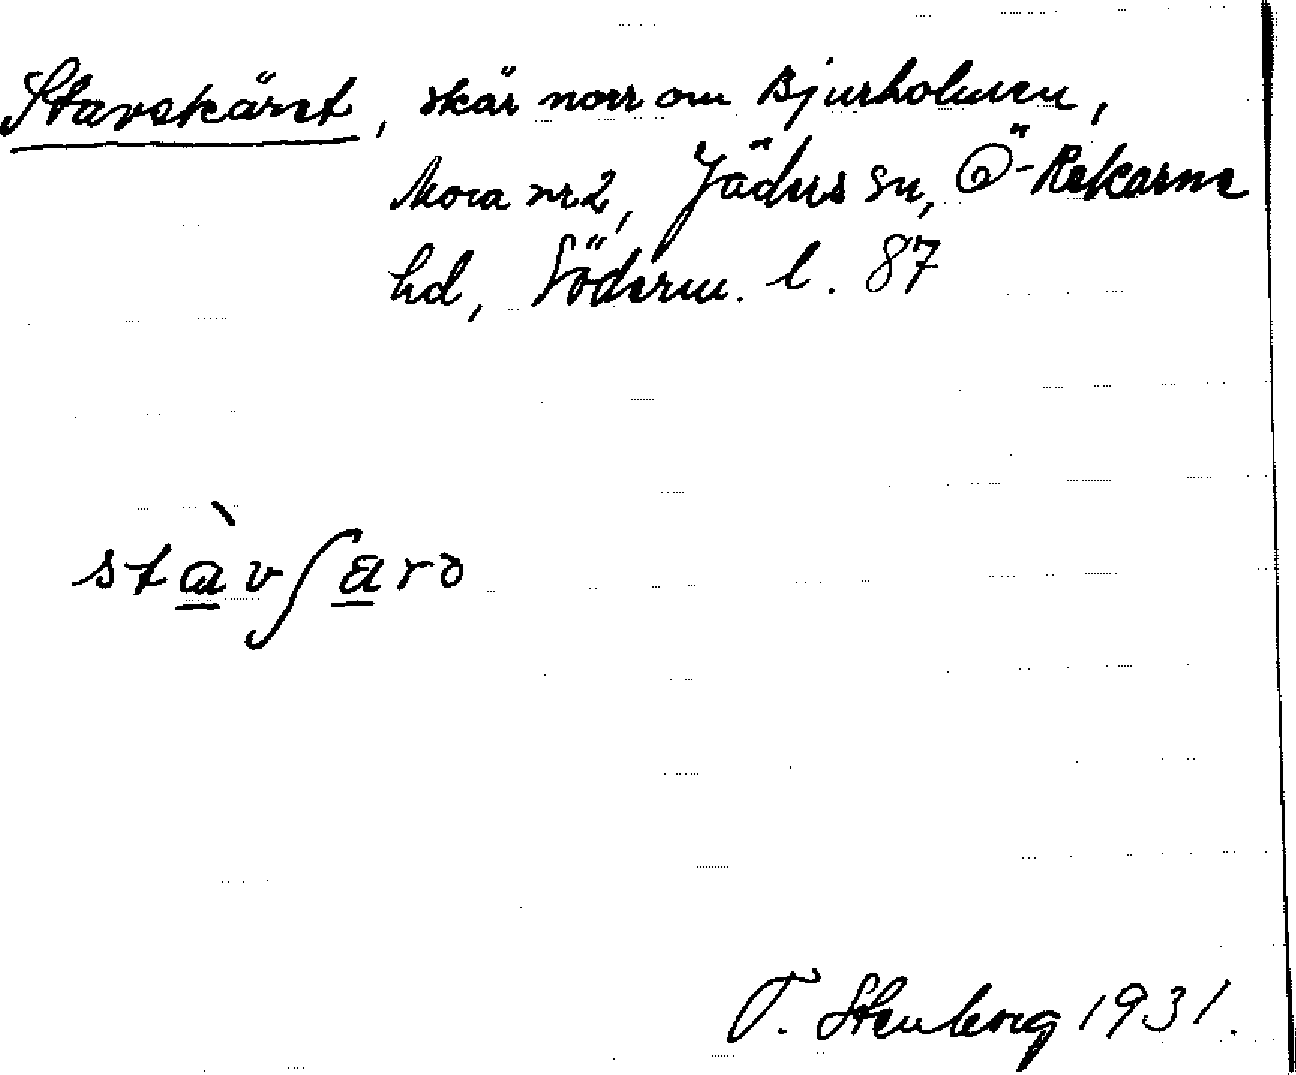 Stavskäret, skär norr om Bjurholmen,
Mora nr 2, Jäders sn, Ö-Rekarne
hd, Söderm. l. 87
stàvʃæro
T. Stenberg 1931.